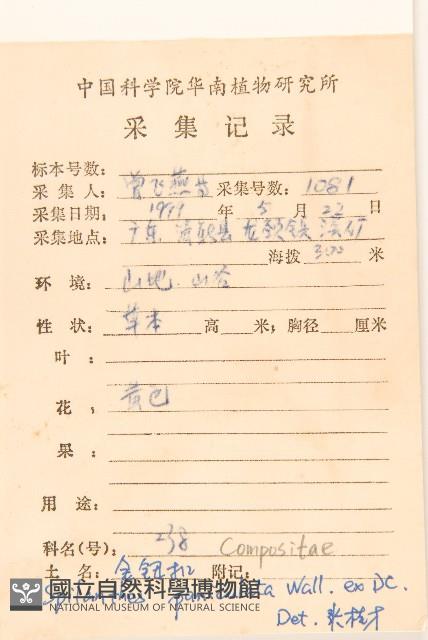 中国科学院华南植物研究所
采集记录
标本号数:
采集人: 曾飞燕 采集号数: 1081
采集日期: 1999 年 5 月 22 日
采集地点: 广东 县 龙 镇
海拨 300 米
环境: 山地. 山谷
性状: 草本 高 米; 胸径 厘米
叶:
花, 黄色
果:
用途:
科名(号): 238 Compositae
土名: 金钮扣 附记:
Wall. ex DC.
國立自然科學博物館
NATIONAL MUSEUM OF NATURAL SCIENCE
Det. 张桂才